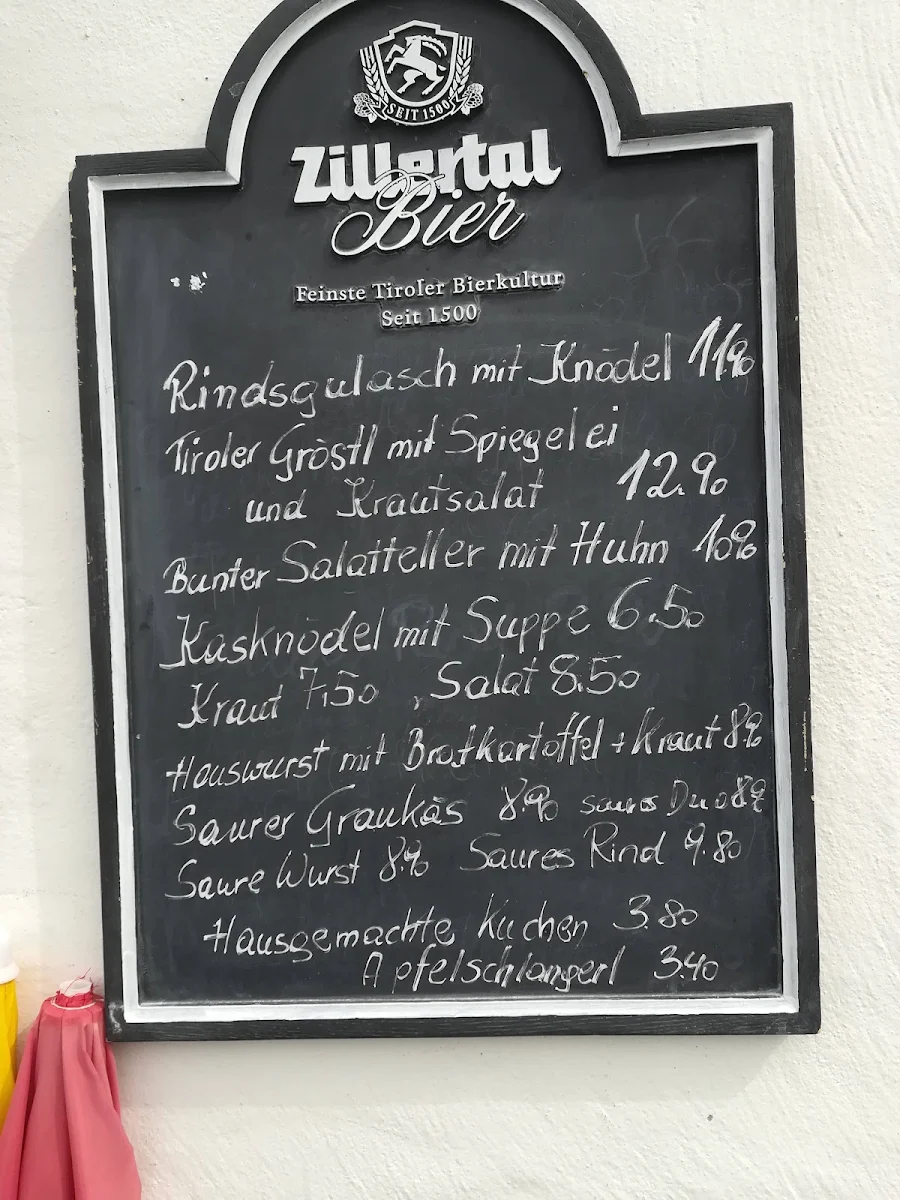 SEIT 1500
Zillertal
Bier
Feinste Tiroler Bierkultur
Seit 1500
Rindsgulasch mit Knödel 11.90
Tiroler Gröstl mit Spiegelei
und Krautsalat 12.90
Bunter Salatteller mit Huhn 10.90
Kasknödel mit Suppe 6.50
Kraut 7,50 , Salat 8.50
Hauswurst mit Bratkartoffel + Kraut 8.90
Saurer Graukäs 8.90 saures Duo 8.90
Saure Wurst 8.90 Saures Rind 9.80
Hausgemachte Kuchen 3.80
Apfelschlangerl 3.40